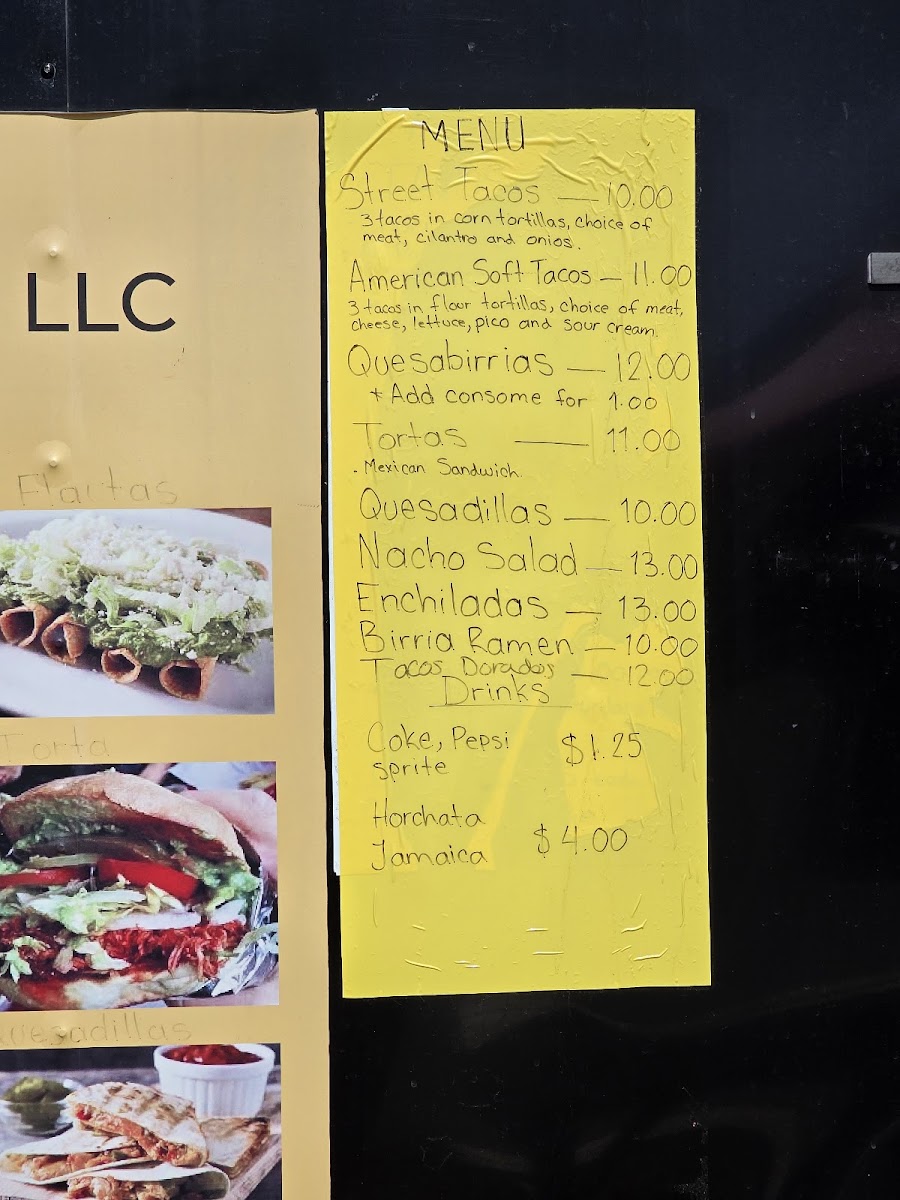 LLC
Flautas
Torta
Quesadillas
MENU
Street Tacos — 10.00
3 tacos in corn tortillas, choice of
meat, cilantro and onios.
American Soft Tacos — 11.00
3 tacos in flour tortillas, choice of meat,
cheese, lettuce, pico and sour cream.
Quesabirrias — 12.00
* Add consome for 1.00
Tortas — 11.00
. Mexican Sandwich.
Quesadillas — 10.00
Nacho Salad — 13.00
Enchiladas — 13.00
Birria Ramen — 10.00
Tacos Dorados — 12.00
Drinks
Coke, Pepsi $1.25
sprite
Horchata $4.00
Jamaica